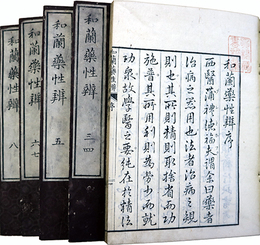 和蘭藥性辨序
西醫蒲禮讀福夫謂余曰藥者
治病之器用也法者治病之規
則也其則精則取捨省而功
施普其器用利則為勞少而就
功衆故學醫之要純在於精法
和蘭藥性辨
和蘭藥性辨 三四
和蘭藥性辨 五
和蘭藥性辨 六七
和蘭藥性辨 八